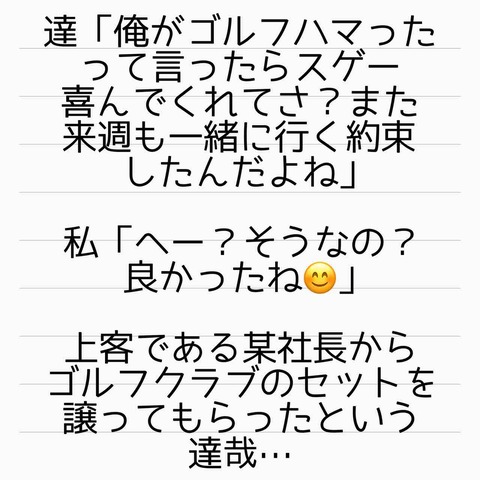 達「俺がゴルフハマった
って言ったらスゲー
喜んでくれてさ？また
来週も一緒に行く約束
したんだよね」
私「へー？そうなの？
良かったね😊」
上客である某社長から
ゴルフクラブのセットを
譲ってもらったという
達哉…